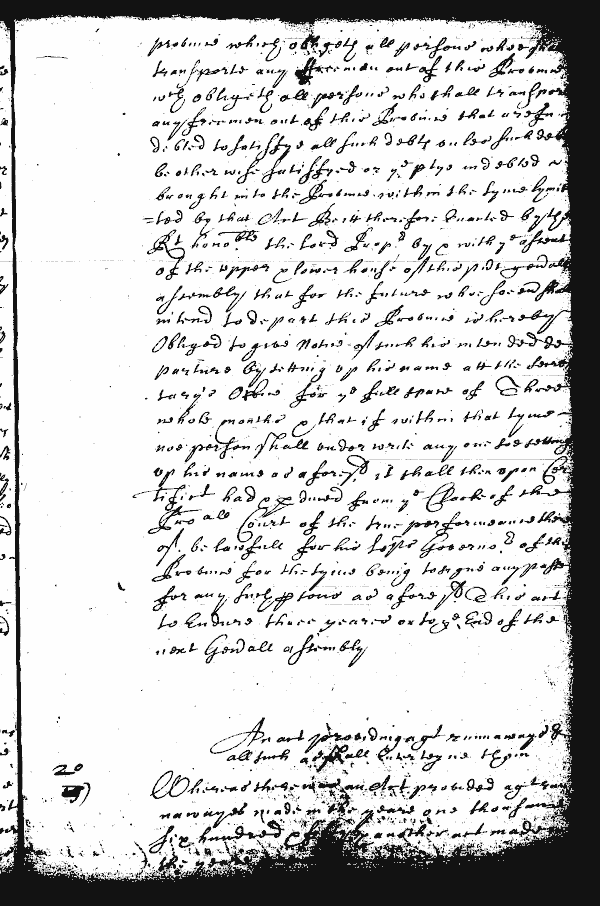 province which obligeth all persons who shall
transporte any ffreeman out of this Province
wch obligeth all persons who shall transport
any freemen out of this Province that are In
debted to satisfye all such debts unles such debt
be otherwise satisfyed or ye ptye indebted
brought into the Province within the tyme lymit
=ted by that Act Bee itt therefore Enacted by the
Rt honoble the lord Propr by & with ye assent
of the upper & lower house of this psnt genall
assembly that for the future whosoever shall
intend to depart this Province is hereby
Obliged to give Notice of such his intended de
parture by setting up his name att the Secre
tary's Office for ye full space of Three
whole months & that if within that tyme
noe person shall under write any one soe setting
up his name as aforesd it shall then upon Cer
tificat had & pduced from ye Clarke of the
Pro all Court of the true performeance there
of, be lawfull for his Lopps Governor of this
Province for the tyme being to signe any passe
for any such psons as aforesd This act
to Endure three yeares or to ye End of the
next Genall assembly
An act providing agt runnaways &
all such as shall Enterteyne them
20
Whereas there was an Act provided agt run
nawayes made in the yeare one thousand
six hundred & another act made
the yeare